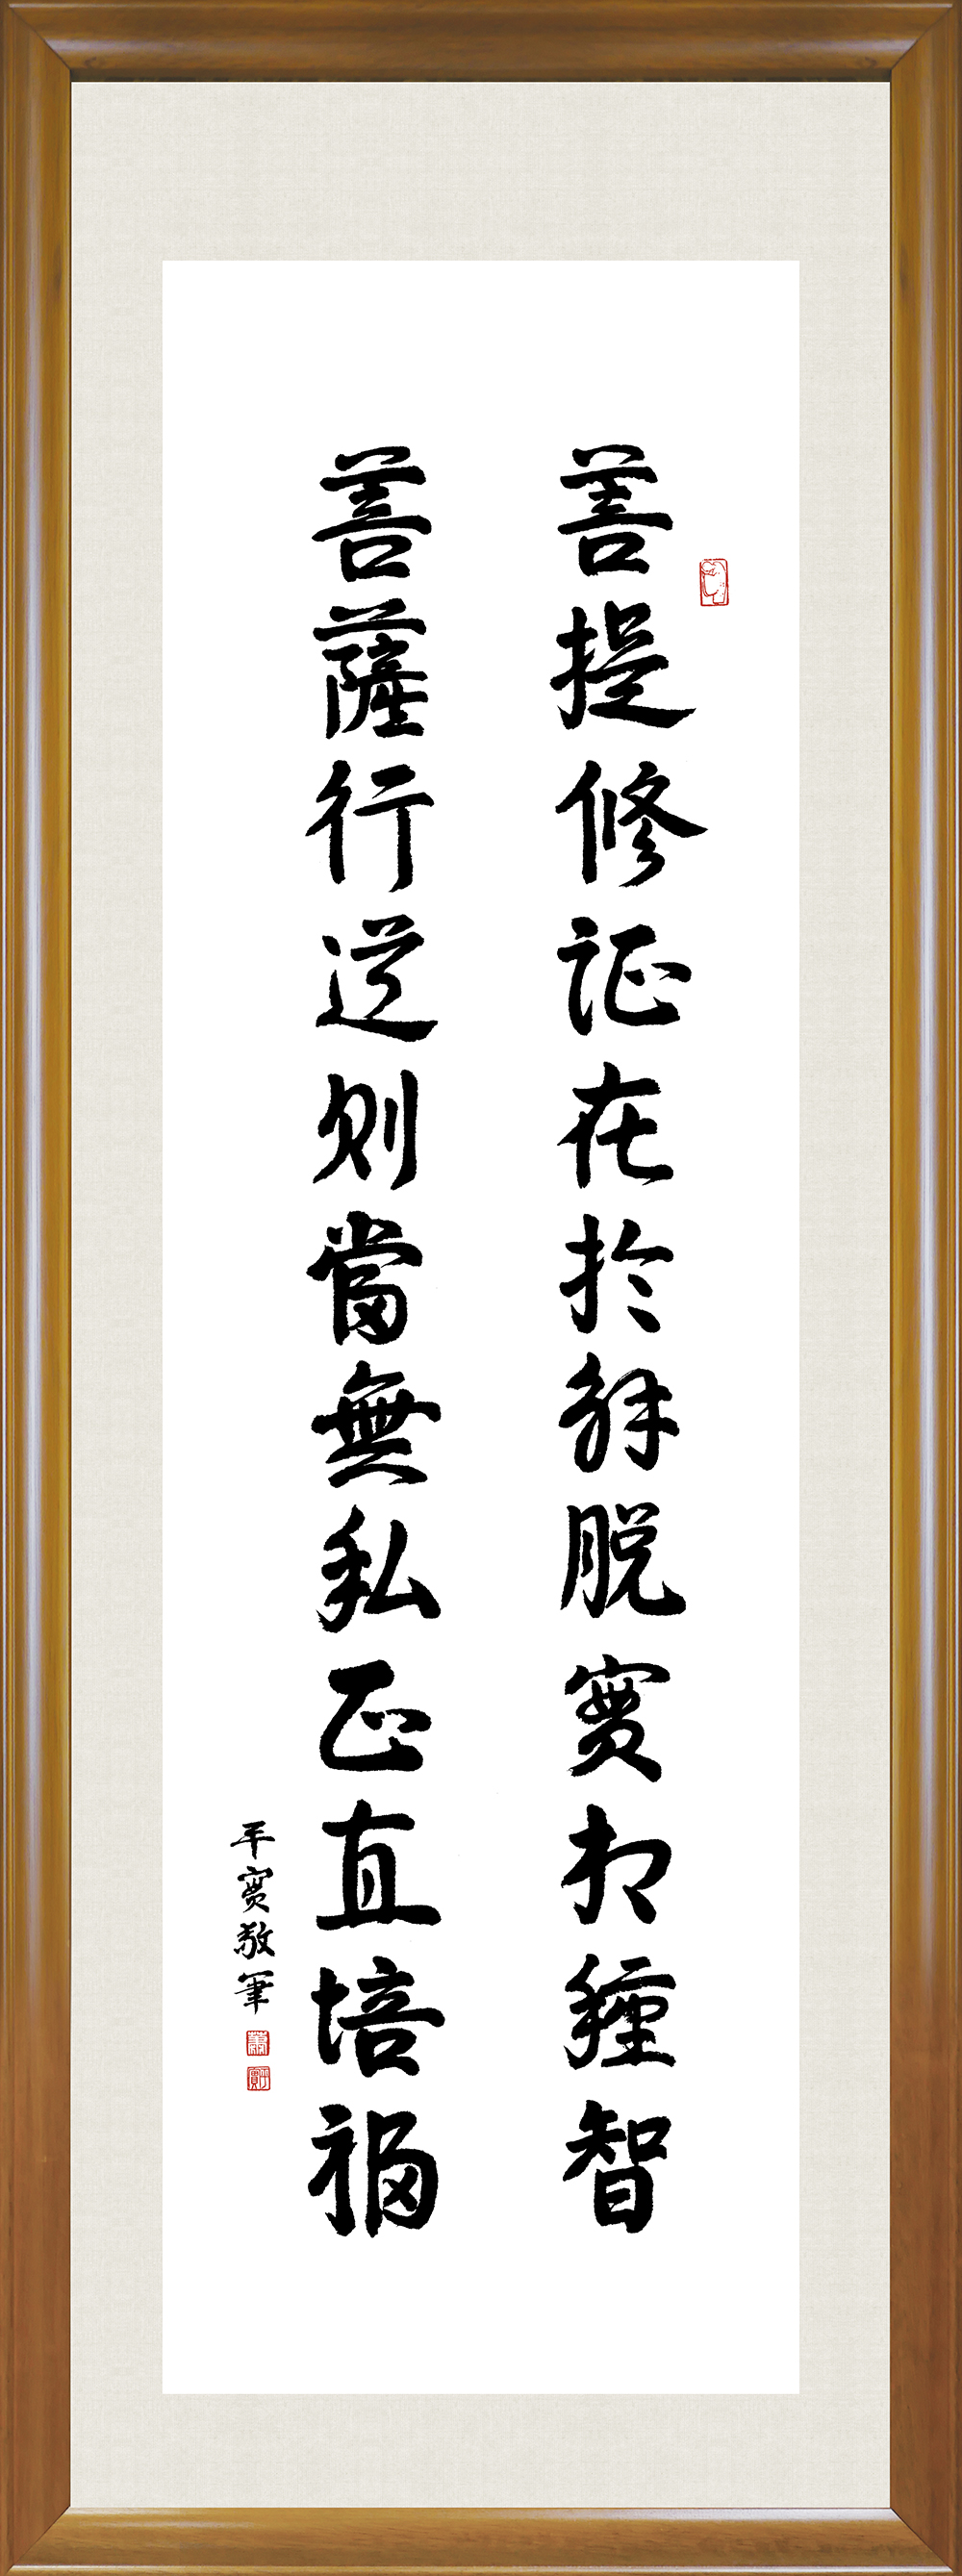 菩提修証在於解脱實相種智
菩薩行道則當無私正直培福
平實敬筆
蕭
平實